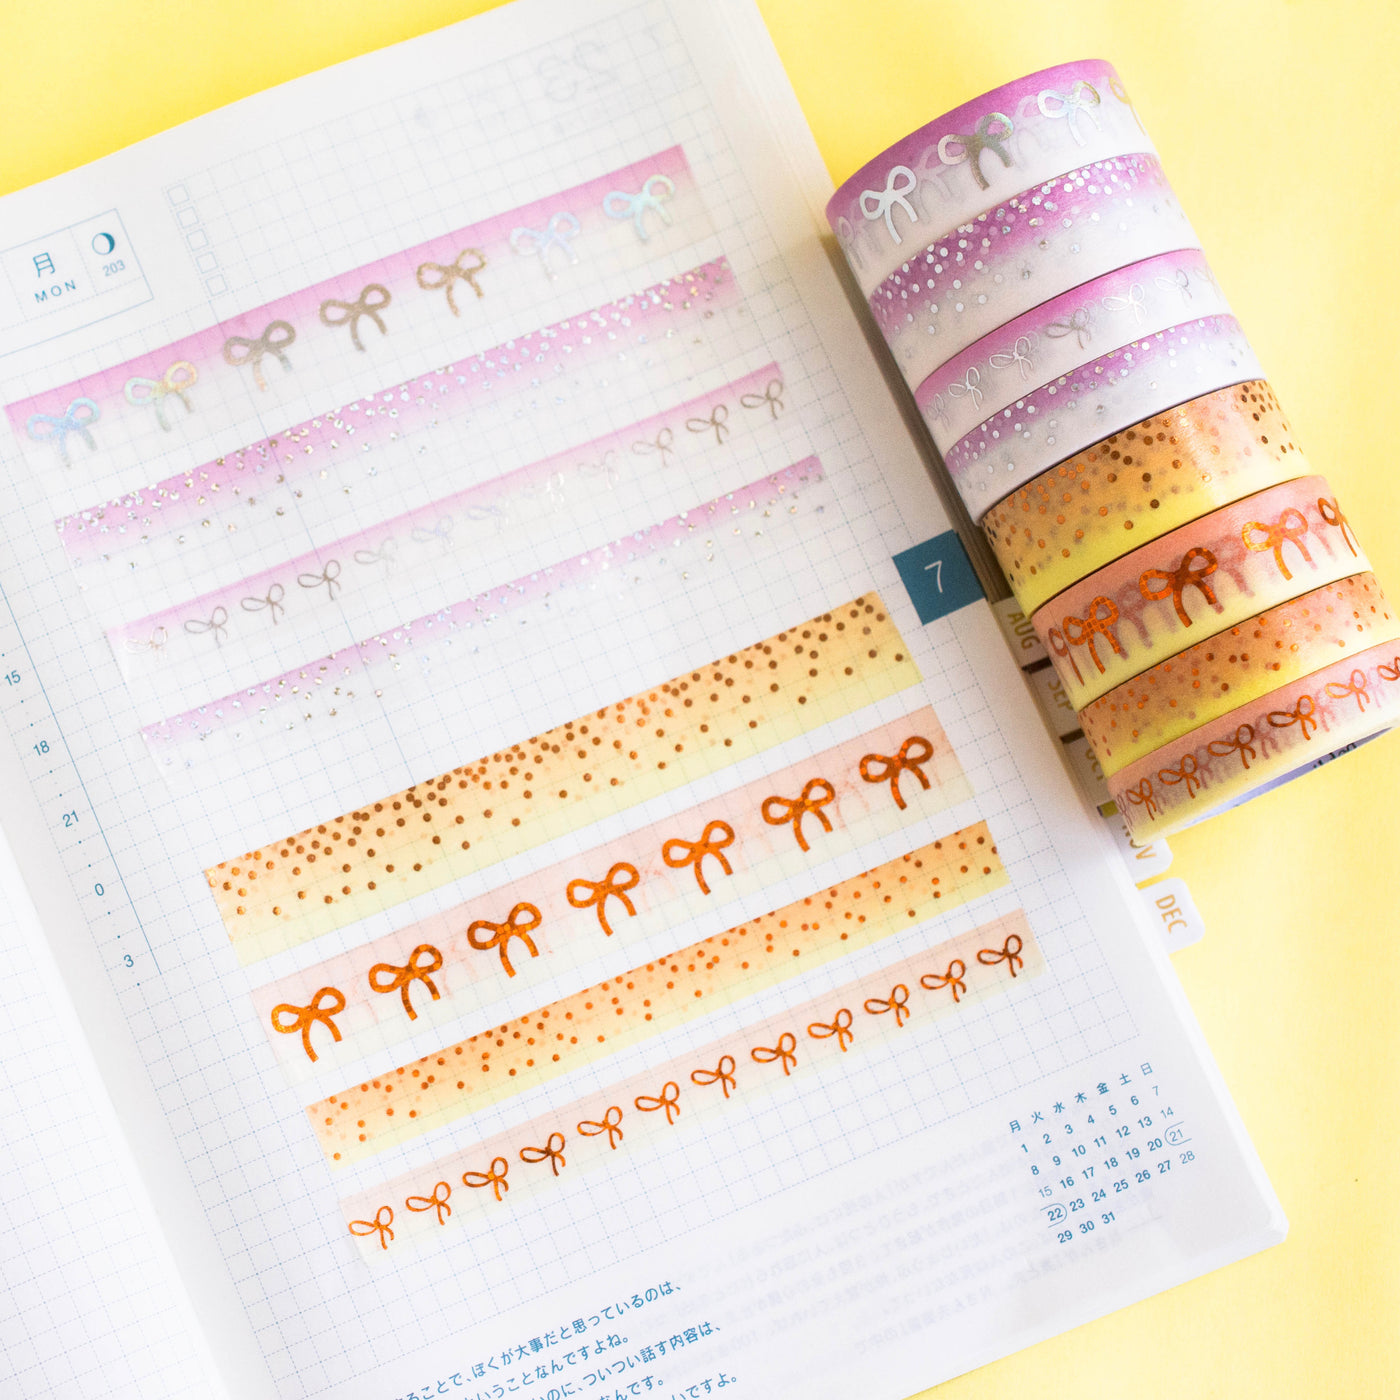 月
MON
203
15
18
21
0
3
7
AUG
SEP
NOV
DEC
月 火 水 木 金 土 日
1 2 3 4 5 6 7
8 9 10 11 12 13 14
15 16 17 18 19 20 21
22 23 24 25 26 27 28
29 30 31
ることで、ぼくが大事だと思っているのは、
ということなんですよね。
いのに、ついつい話す内容は、
なんです。
いですよ。